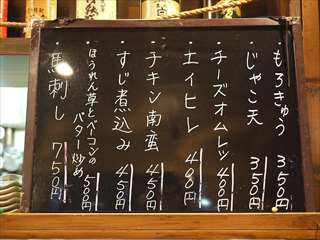 ・もろきゅう 350円
・じゃこ天 350円
・チーズオムレツ 400円
・エイヒレ 400円
・チキン南蛮 450円
・すじ煮込み 450円
・ほうれん草とベーコンの
バター炒め 500円
・馬刺し 750円